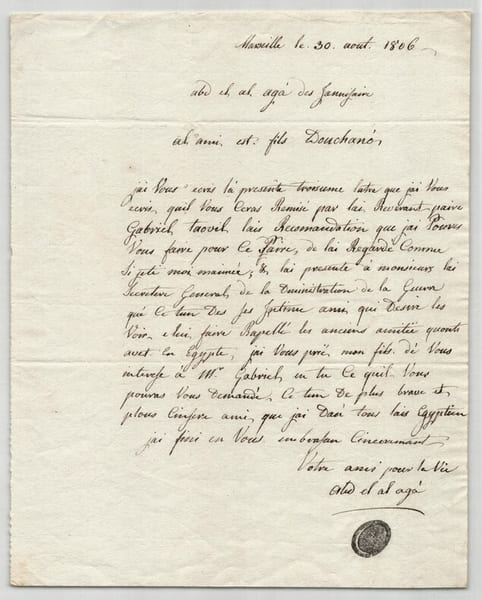 Marseille le 30. aout. 1806
abd el al agà des Jannissaire
al ami est fils Douchané,
jai Vous ecris la presente troisieme latre que jai Vous
ecris, quil Vous Ceras Remise par lai Reverant paire
Gabriel, taovil lais Recomandation que jai Pouves
Vous faire pour Ce Paire, de lai Regardé Comme
Si jeté moi maime, & lai presente à monsieur lai
Secretere General, de la Dministration de la Guera
que Ce tun Des Jes Jntime ami, qui Desire les
Voir, e lui faire Rapellé les anciens amitée quonts
avet En Egypte, jai Vous prië mon fils dé Vous
à Mr Gabriel, en tu Ce quil Vous
pouras Vous Demandé, Ce tun De plus brave et
plous Cinsere ami, que jai Dan tous lais Egiptien
jai fini en Vous enbrasan Cinceramant
Votre amis pour la Vie
abd el al agà